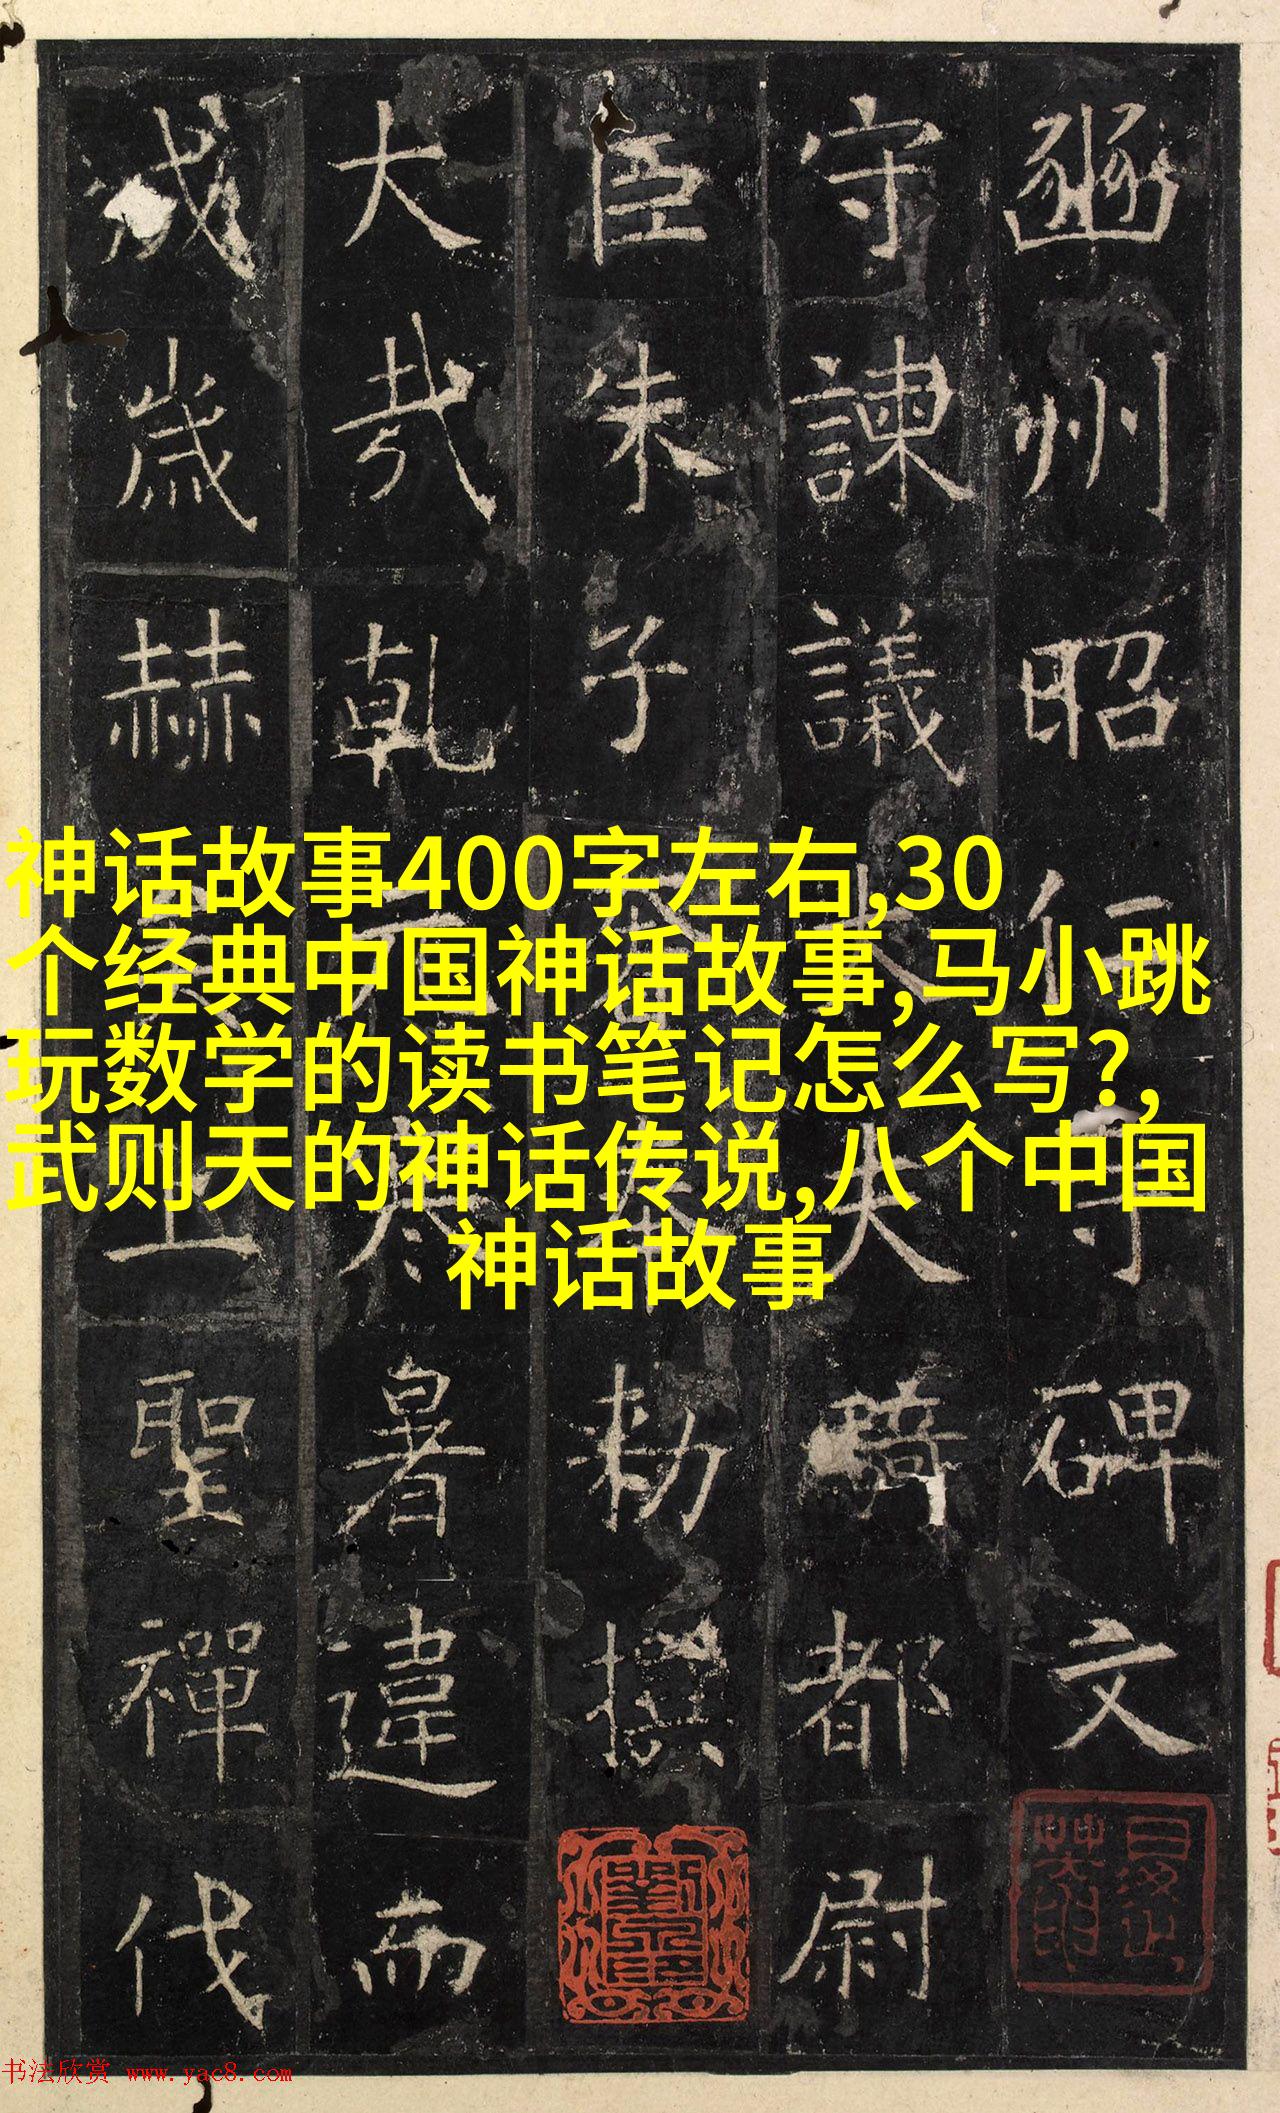 豳州昭仁寺碑文
守諫議大夫騎都尉
臣朱子奢奉勑撰
大哉乾元寒暑違而
成歲赫矣上聖禪代
神话故事400字左右,30
个经典中国神话故事,马小跳
玩数学的读书笔记怎么写?,
武则天的神话传说,八个中国
神话故事
书法欣赏 www.yac8.com